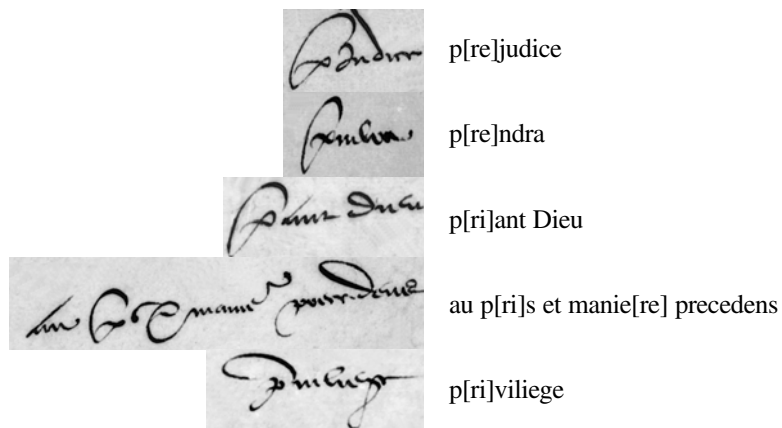 p[re]judice
p[re]ndra
p[ri]ant Dieu
au p[ri]s et manie[re] precedens
p[ri]viliege